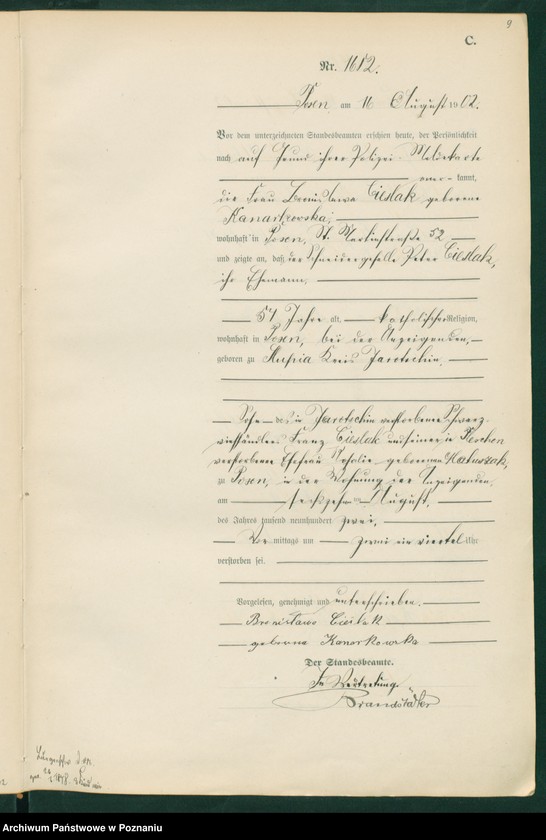 9
C.
Nr. 1682.
Posen, am 16 August 1902.
Vor dem unterzeichneten Standesbeamten erschien heute, der Persönlichkeit
nach auf Grund ihrer Polizei-Meldekarte
aner-kannt,
die Frau Bronislawa Cieslak geborene
Kanarkowska,
wohnhaft in Posen, St. Martinstraße 52
und zeigte an, daß der Schneidergeselle Peter Cieslak,
ihr Ehemann,
57 Jahre alt, katholischer Religion,
wohnhaft in Posen, bei der Anzeigenden,
geboren zu Kreis Jarotschin,
Sohn des in Jarotschin verstorbenen Schwarz-
viehhändlers Franz Cieslak und seiner in Pleschen
verstorbenen Ehefrau Rosalie geborenen
zu Posen, in der Wohnung der Anzeigenden,
am sechszehnten August
des Jahres tausend neunhundert zwei,
Vor mittags um zwei ein viertel Uhr
verstorben sei.
Vorgelesen, genehmigt und unterschrieben.
Bronisława Cieślak
geborna Kanarkowska
Der Standesbeamte.
In Vertretung.
Brandstädter
Archiwum Państwowe w Poznaniu